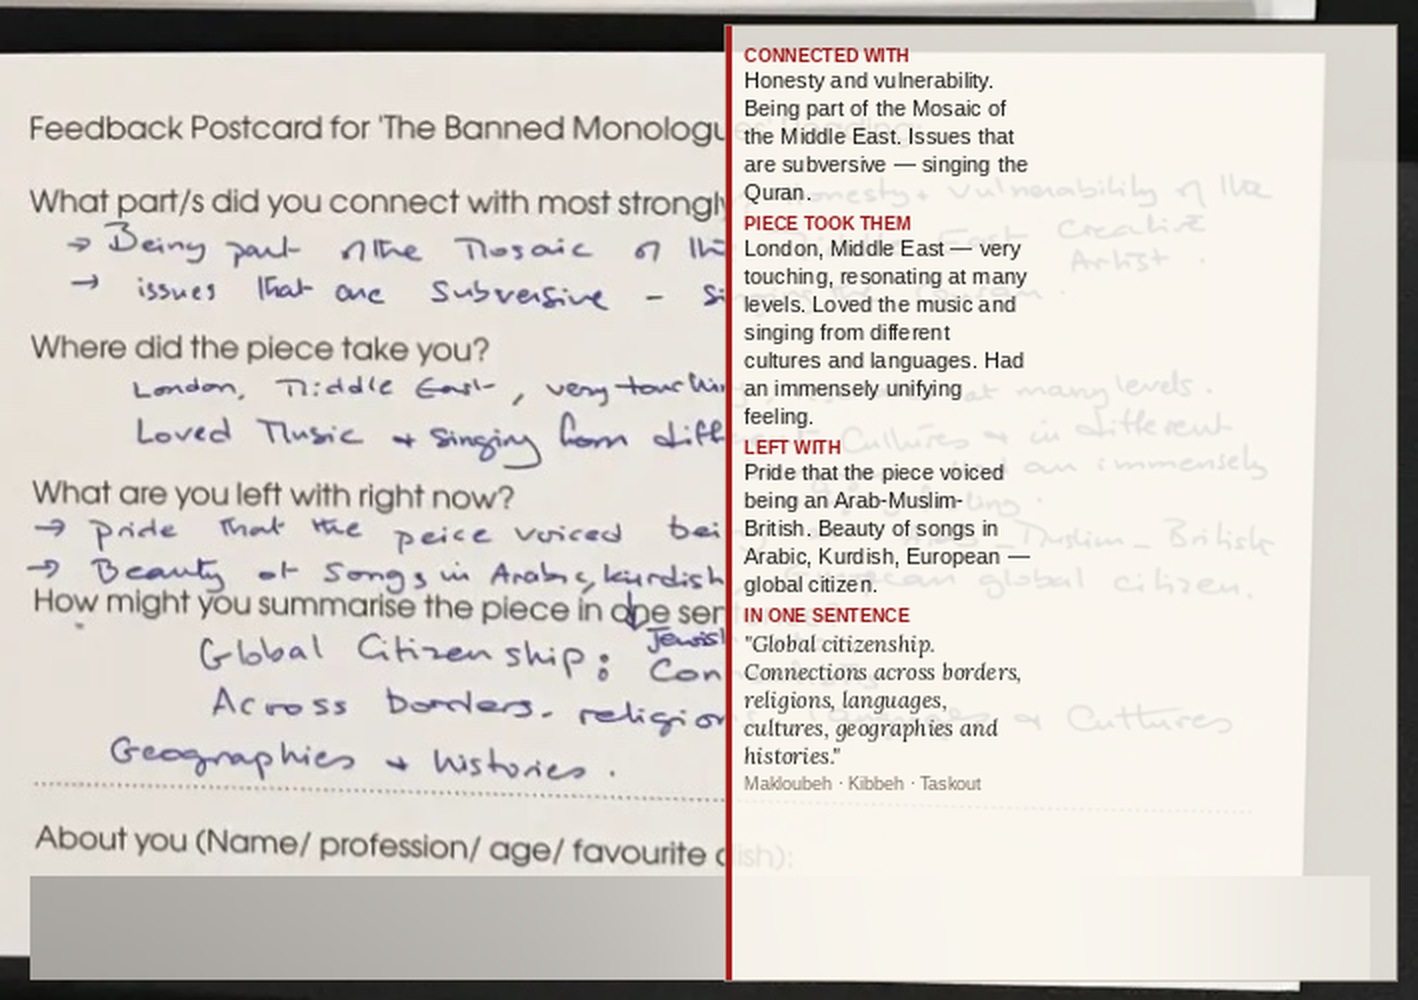 Feedback Postcard for 'The Banned Monologues' Reading:
What part/s did you connect with most strongly
honesty + vulnerability of the
Creative
Artist.
→ Being part of the Mosaic of the Middle East
→ issues that are Subversive - singing the Quran.
Where did the piece take you?
London, Middle East, very touching, at many levels.
Loved Music + Singing from different Cultures + in different
had an immensely
feeling.
What are you left with right now?
→ pride that the peice voiced being Arab_Muslim_British
→ Beauty of Songs in Arabic, Kurdish, European global citizen.
How might you summarise the piece in one sentence
Jewish
Global Citizenship: Connections
Across borders. religions, languages + Cultures
Geographies + histories.
About you (Name/ profession/ age/ favourite dish):
CONNECTED WITH
Honesty and vulnerability.
Being part of the Mosaic of
the Middle East. Issues that
are subversive — singing the
Quran.
PIECE TOOK THEM
London, Middle East — very
touching, resonating at many
levels. Loved the music and
singing from different
cultures and languages. Had
an immensely unifying
feeling.
LEFT WITH
Pride that the piece voiced
being an Arab-Muslim-
British. Beauty of songs in
Arabic, Kurdish, European —
global citizen.
IN ONE SENTENCE
"Global citizenship.
Connections across borders,
religions, languages,
cultures, geographies and
histories."
Makloubeh · Kibbeh · Taskout